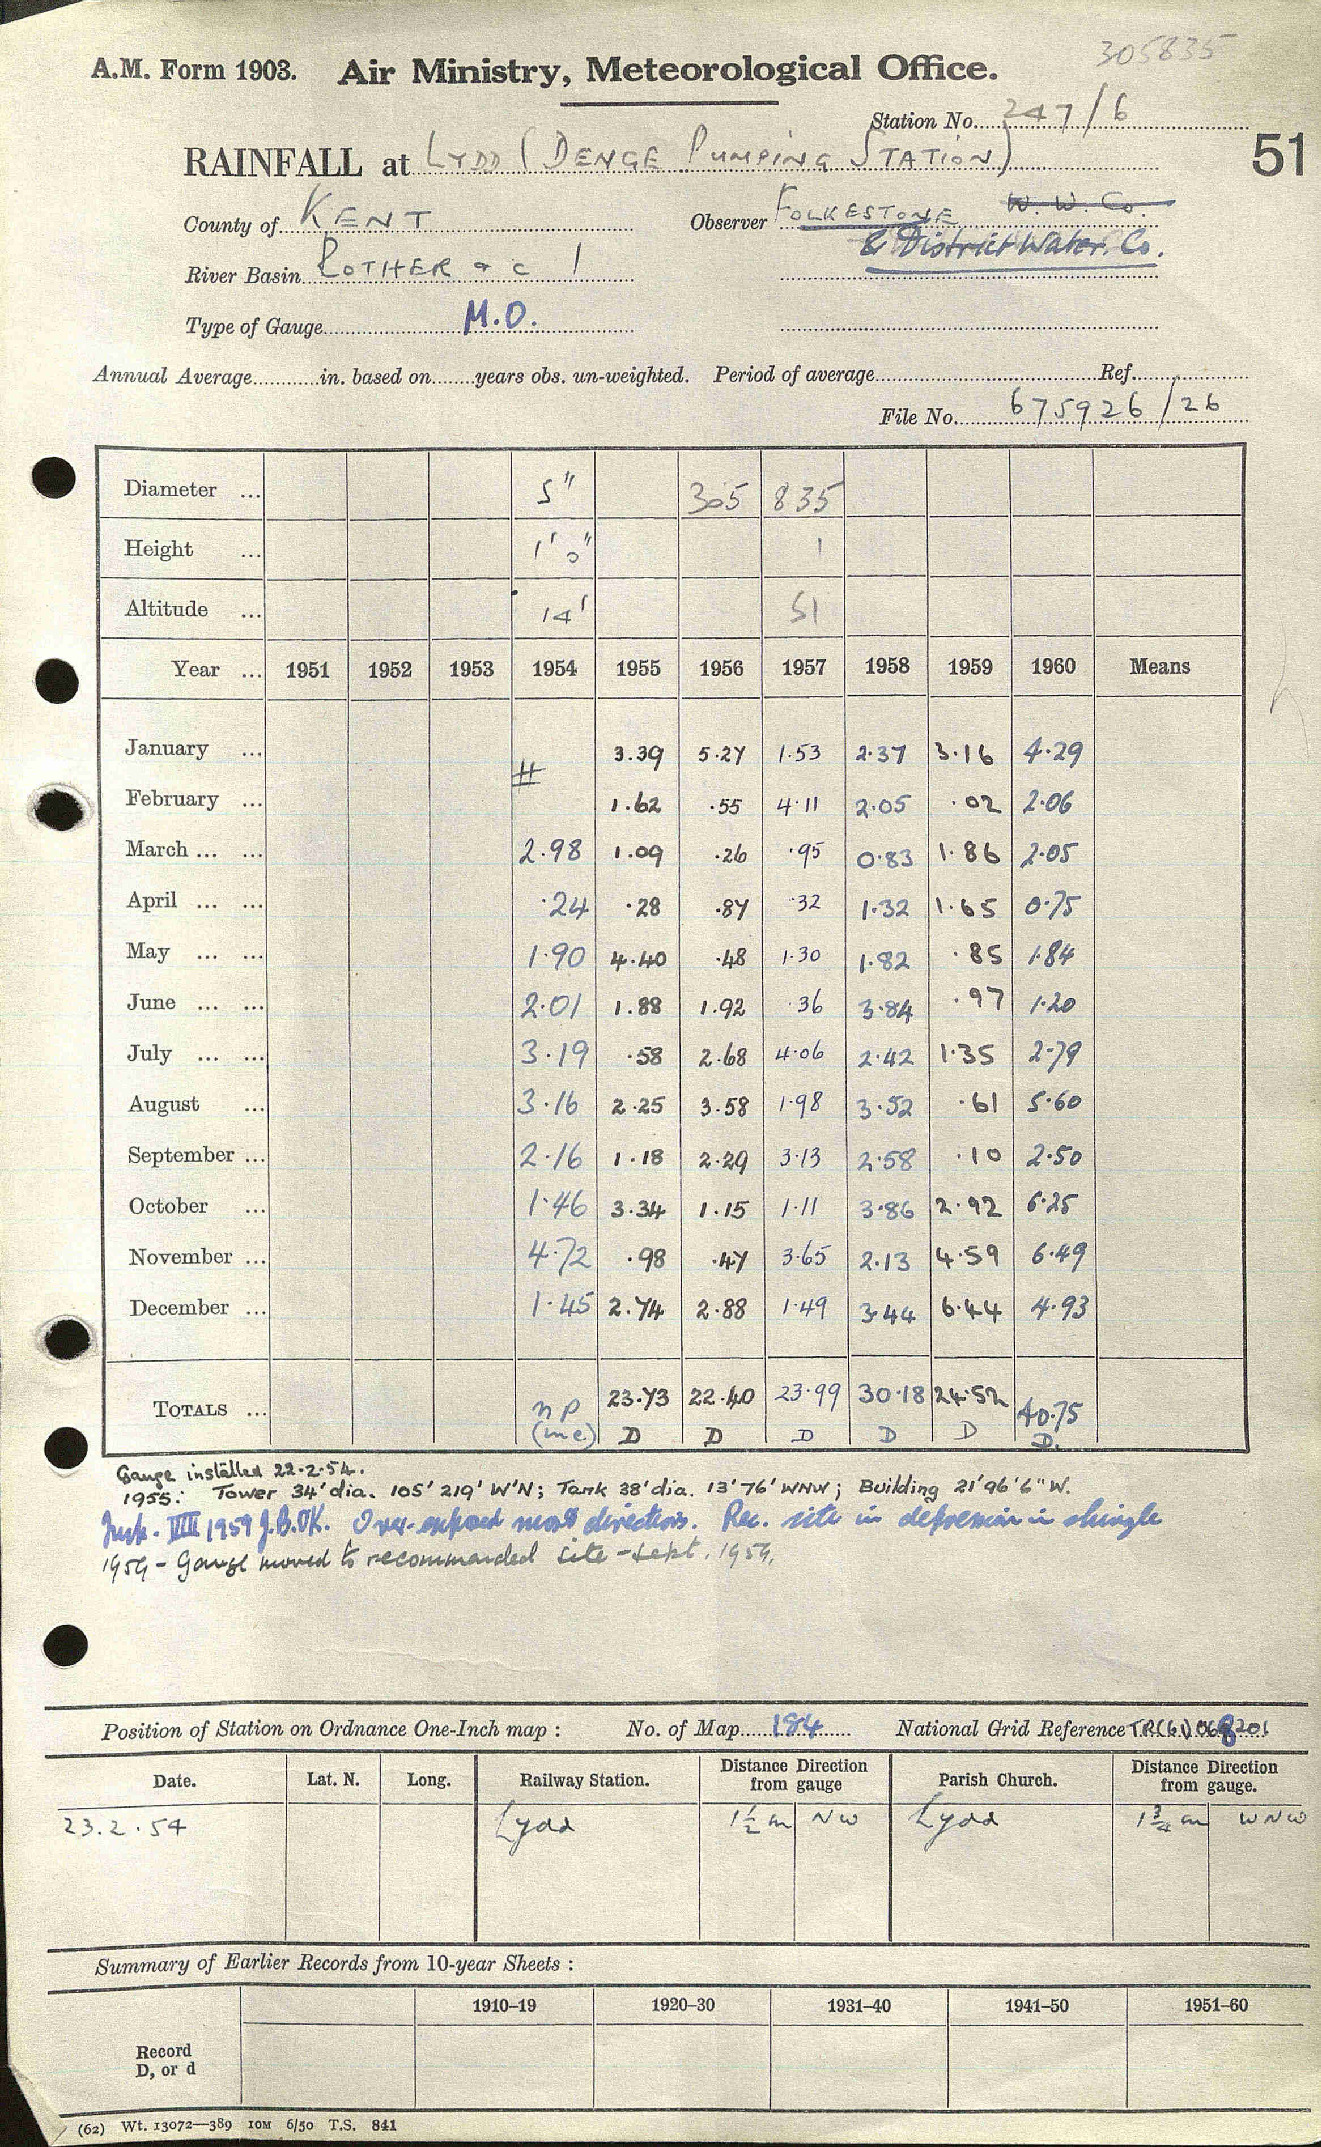 305835
A.M. Form 1903. Air Ministry, Meteorological Office.
Station No. 247/6
51
RAINFALL at LYDD (DENGE PUMPING STATION)
County of KENT Observer FOLKESTONE W. W. Co.
& District Water. Co.
River Basin ROTHER & C 1
Type of Gauge M.O.
Annual Average in. based on years obs. un-weighted. Period of average Ref.
File No. 675926/26
Diameter ... 5" 305 835
Height ... 1' 0" 1
Altitude ... 14' 51
Year ... 1951 1952 1953 1954 1955 1956 1957 1958 1959 1960 Means
January ... # 3.39 5.27 1.53 2.37 3.16 4.29
February ... 1.62 .55 4.11 2.05 .02 2.06
March ... ... 2.98 1.09 .26 .95 0.83 1.86 2.05
April ... ... .24 .28 .87 .32 1.32 1.65 0.75
May ... ... 1.90 4.40 .48 1.30 1.82 .85 1.84
June ... ... 2.01 1.88 1.92 .36 3.84 .97 1.20
July ... ... 3.19 .58 2.68 4.06 2.42 1.35 2.79
August ... 3.16 2.25 3.58 1.98 3.52 .61 5.60
September ... 2.16 1.18 2.29 3.13 2.58 .10 2.50
October ... 1.46 3.34 1.15 1.11 3.86 2.92 6.25
November ... 4.72 .98 .47 3.65 2.13 4.59 6.49
December ... 1.45 2.74 2.88 1.49 3.44 6.44 4.93
TOTALS ... np 23.73 22.40 23.99 30.18 24.52 40.75
(inc) D D D D D D.
Gauge installed 22.2.54.
1955: Tower 34' dia. 105' 219' W'N; Tank 38' dia. 13' 76' WNW; Building 21' 96' 6" W.
Insp. 1959 J.B. OK. Over-exposed most directions. Rec. site in depression in shingle
1959 - Gauge moved to recommended site - Sept. 1959.
Position of Station on Ordnance One-Inch map : No. of Map 184 National Grid Reference TR(61)068201
Date. Lat. N. Long. Railway Station. Distance Direction from gauge Parish Church. Distance Direction from gauge.
23.2.54 Lydd 1½ m NW Lydd 1¾ m WNW
Summary of Earlier Records from 10-year Sheets :
1910–19 1920–30 1931–40 1941–50 1951–60
Record
D, or d
(62) Wt. 13072—389 10M 6/50 T.S. 841